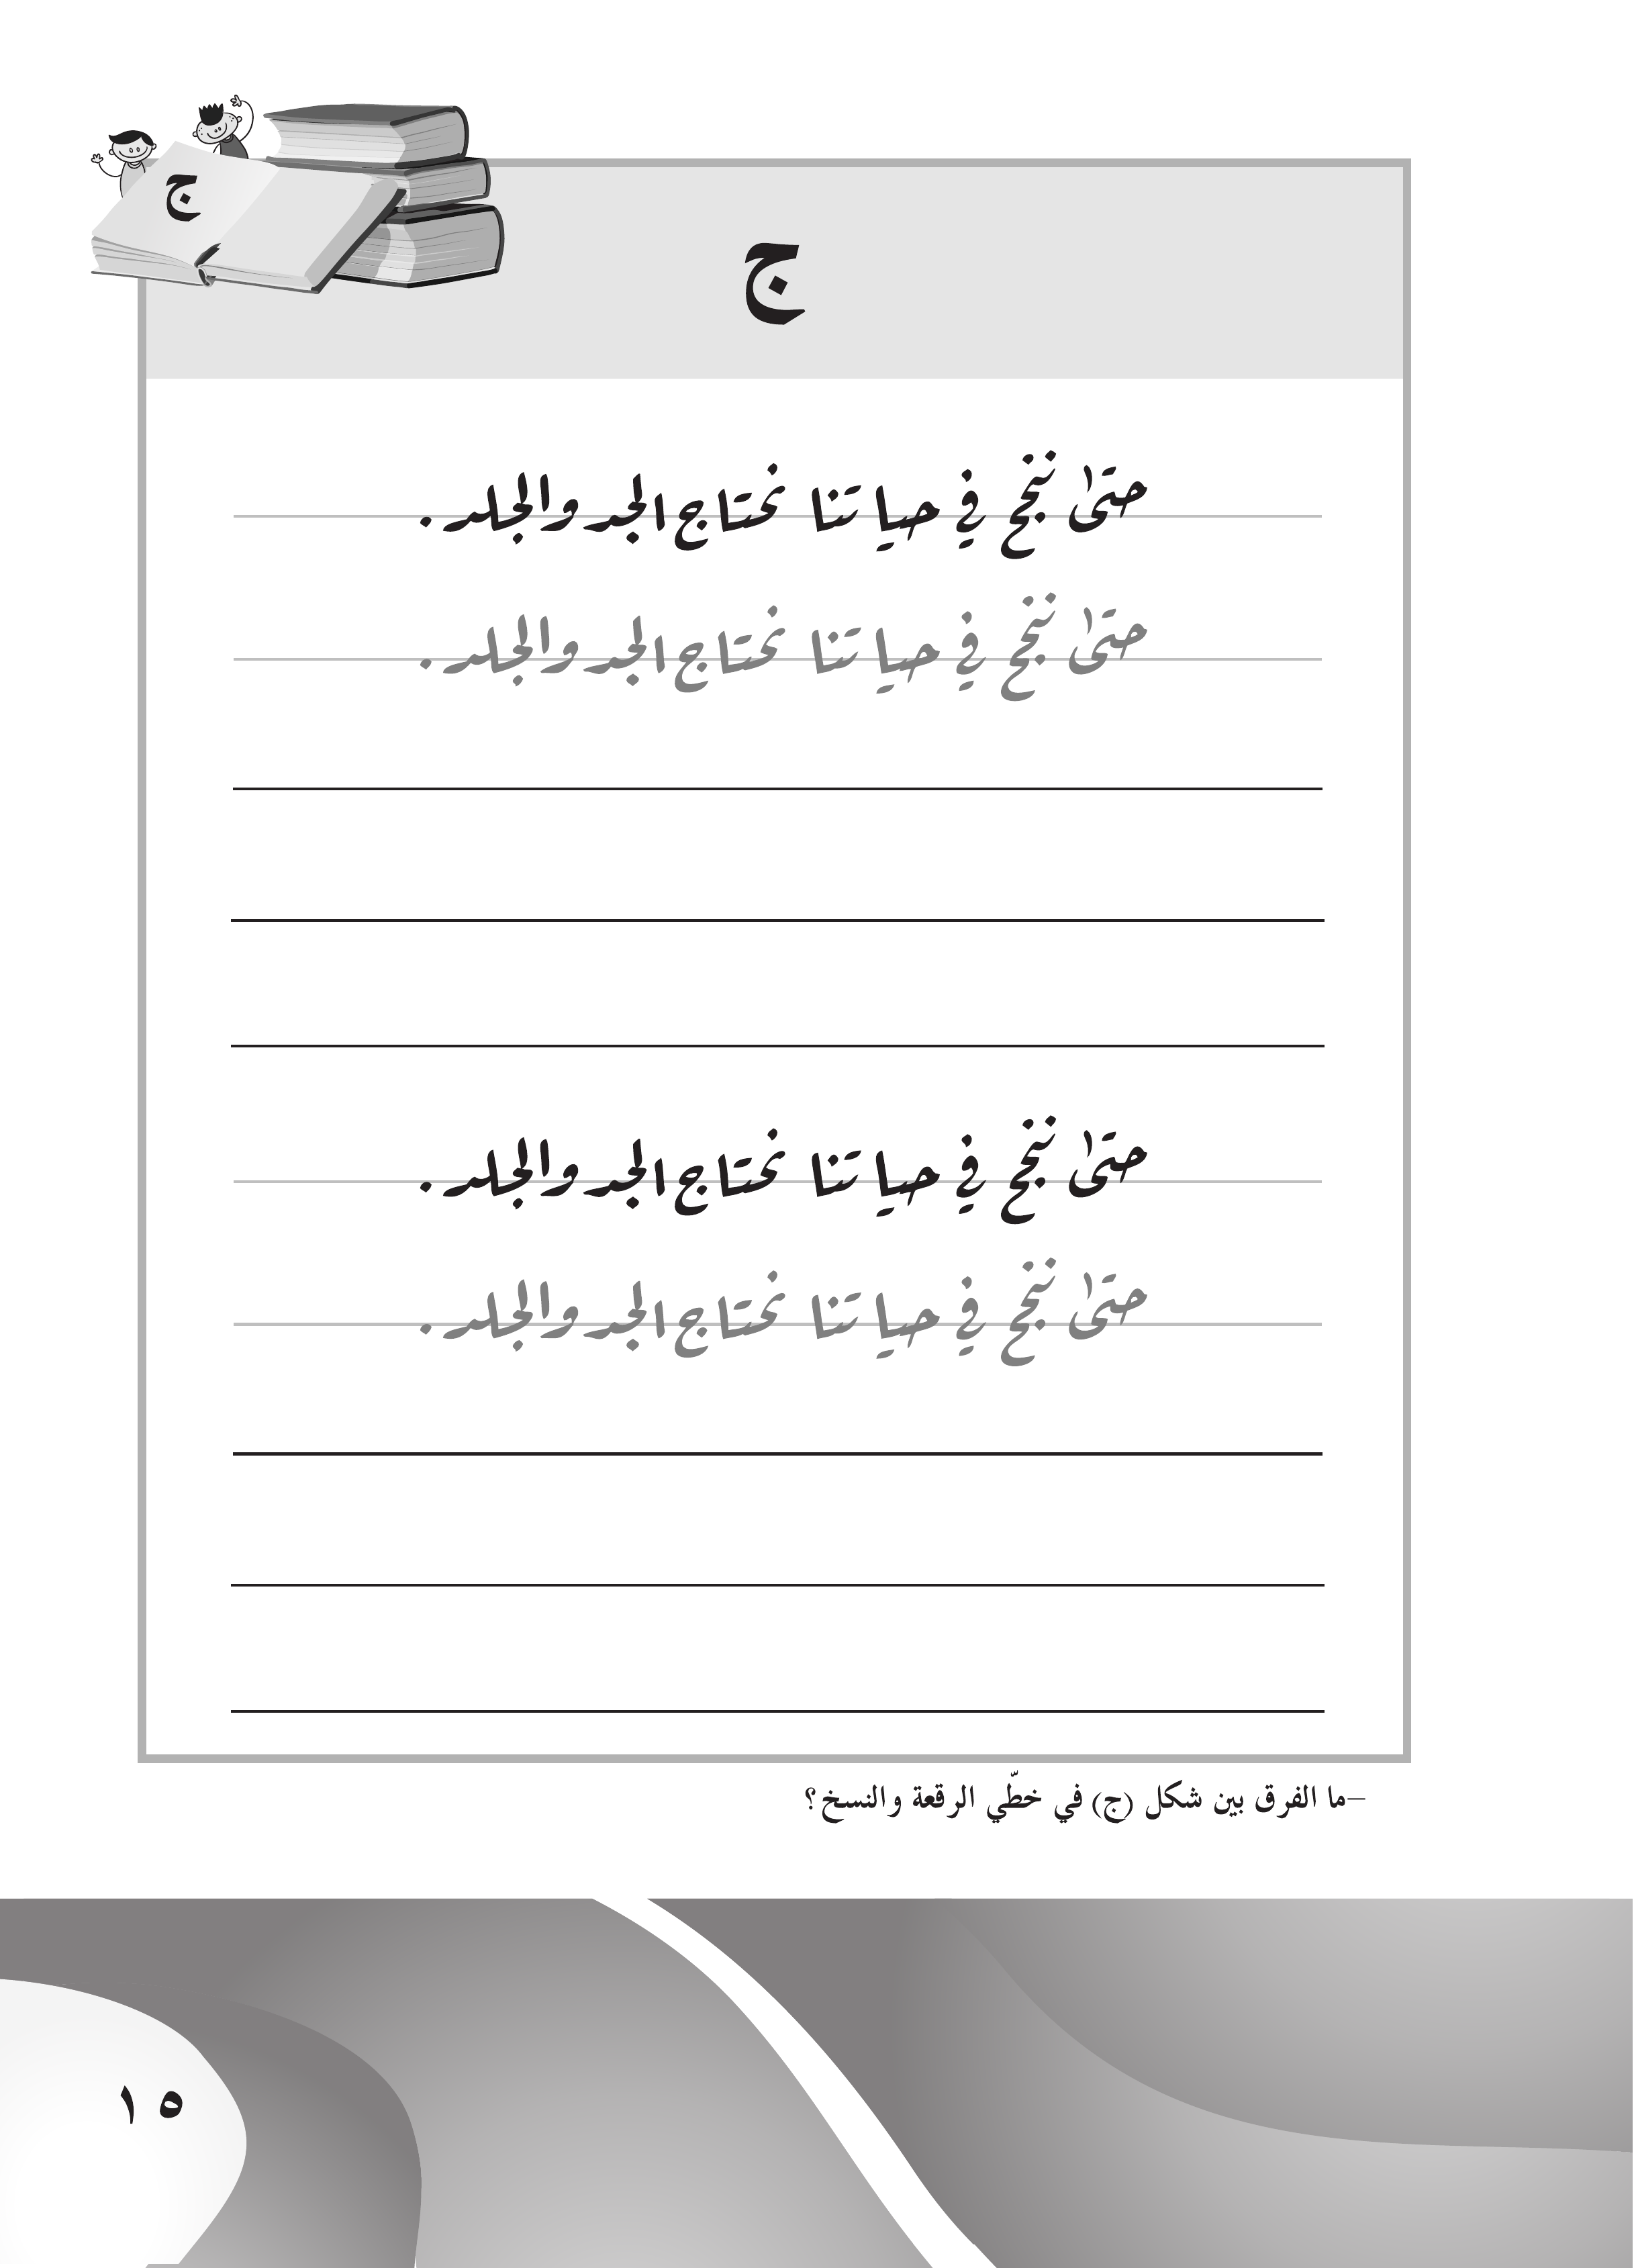 ج
ج
حتىٰ ننجح في حياتنا نحتاج الجد والجلد.
حتىٰ ننجح في حياتنا نحتاج الجد والجلد.
حتىٰ ننجح في حياتنا نحتاج الجد والجلد.
حتىٰ ننجح في حياتنا نحتاج الجد والجلد.
–ما الفرق بين شكل (ج) في خطّي الرقعة والنسخ؟
١٥